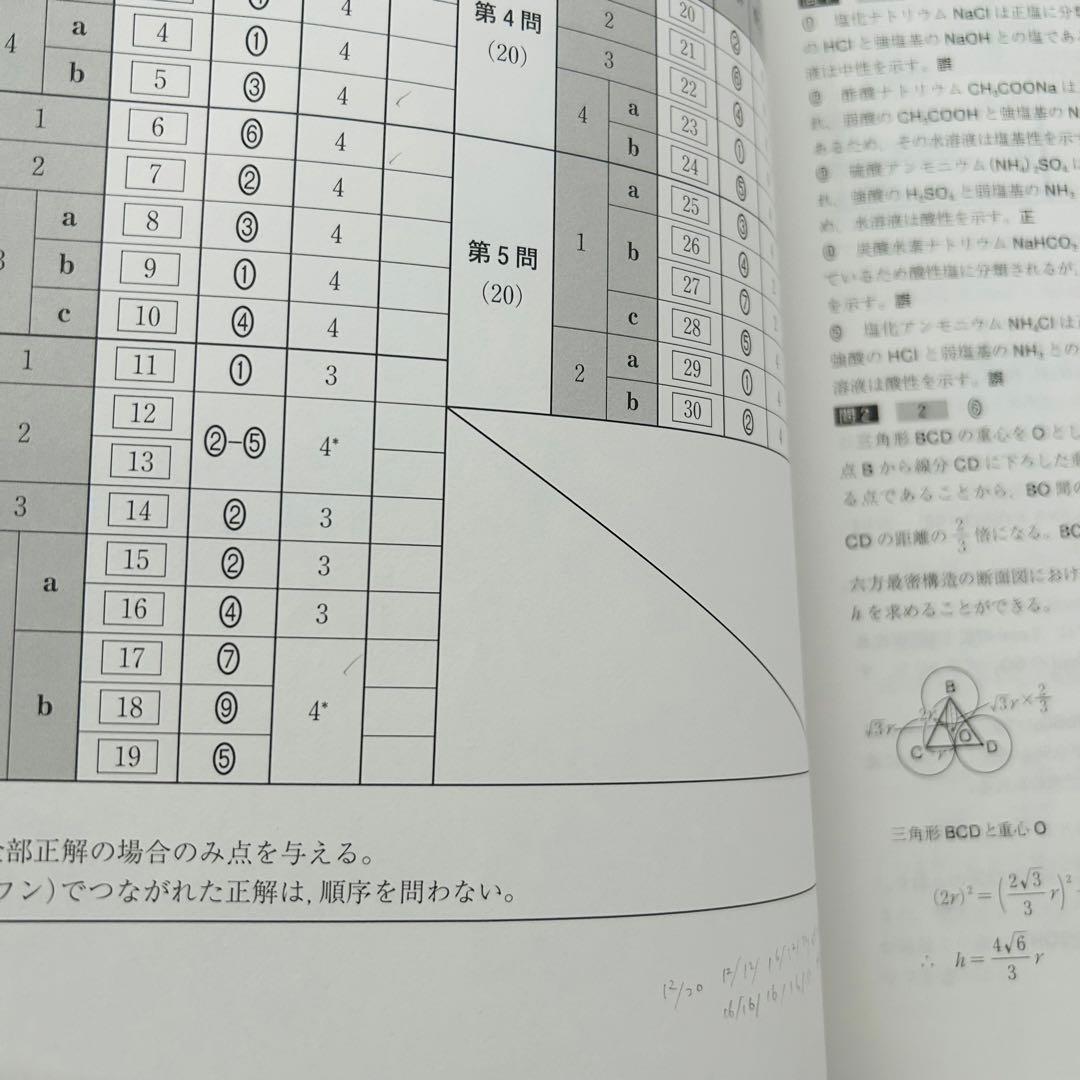 4 a 4 ① 4
b 5 ③ 4
1 6 ⑥ 4
2 7 ② 4
3 a 8 ③ 4
b 9 ① 4
c 10 ④ 4
1 11 ① 3
2 12 ②−⑤ 4*
13
3 14 ② 3
a 15 ② 3
16 ④ 3
b 17 ⑦ 4*
18 ⑨
19 ⑤
第4問
(20)
20 ②
2 21 ⑥
3 22 ④
4 a 23 ①
b 24 ⑤
第5問
(20)
1 a 25 ③
b 26 ④
27 ⑦
c 28 ⑤
2 a 29 ① 4
b 30 ② 4
部正解の場合のみ点を与える。
フン)でつながれた正解は, 順序を問わない。
12/20 12/12/
16/16/16/16/
塩化ナトリウム NaCl は正塩に分
の HCl と強塩基の NaOH との塩であ
液は中性を示す。誤
酢酸ナトリウム CH₃COONa は
れ, 弱酸の CH₃COOH と強塩基の
あるため, その水溶液は塩基性を示
硫酸アンモニウム(NH₄)₂SO₄ は
れ, 強酸の H₂SO₄ と弱塩基の NH₃
め, 水溶液は酸性を示す。正
炭酸水素ナトリウム NaHCO₃
ているため酸性塩に分類されるが,
を示す。誤
⑤ 塩化アンモニウム NH₄Cl は
強酸の HCl と弱塩基の NH₃ との
溶液は酸性を示す。誤
問2 2 ⑥
三角形 BCD の重心を O とし
点 B から線分 CD に下ろした
る点であることから, BO 間の
CD の距離の 2/3 倍になる。BC
六方最密構造の断面図におけ
h を求めることができる。
B
√3r 2r √3r×2/3
C r O D
三角形 BCD と重心 O
(2r)²=(2√3/3 r)²
∴ h=4√6/3 r